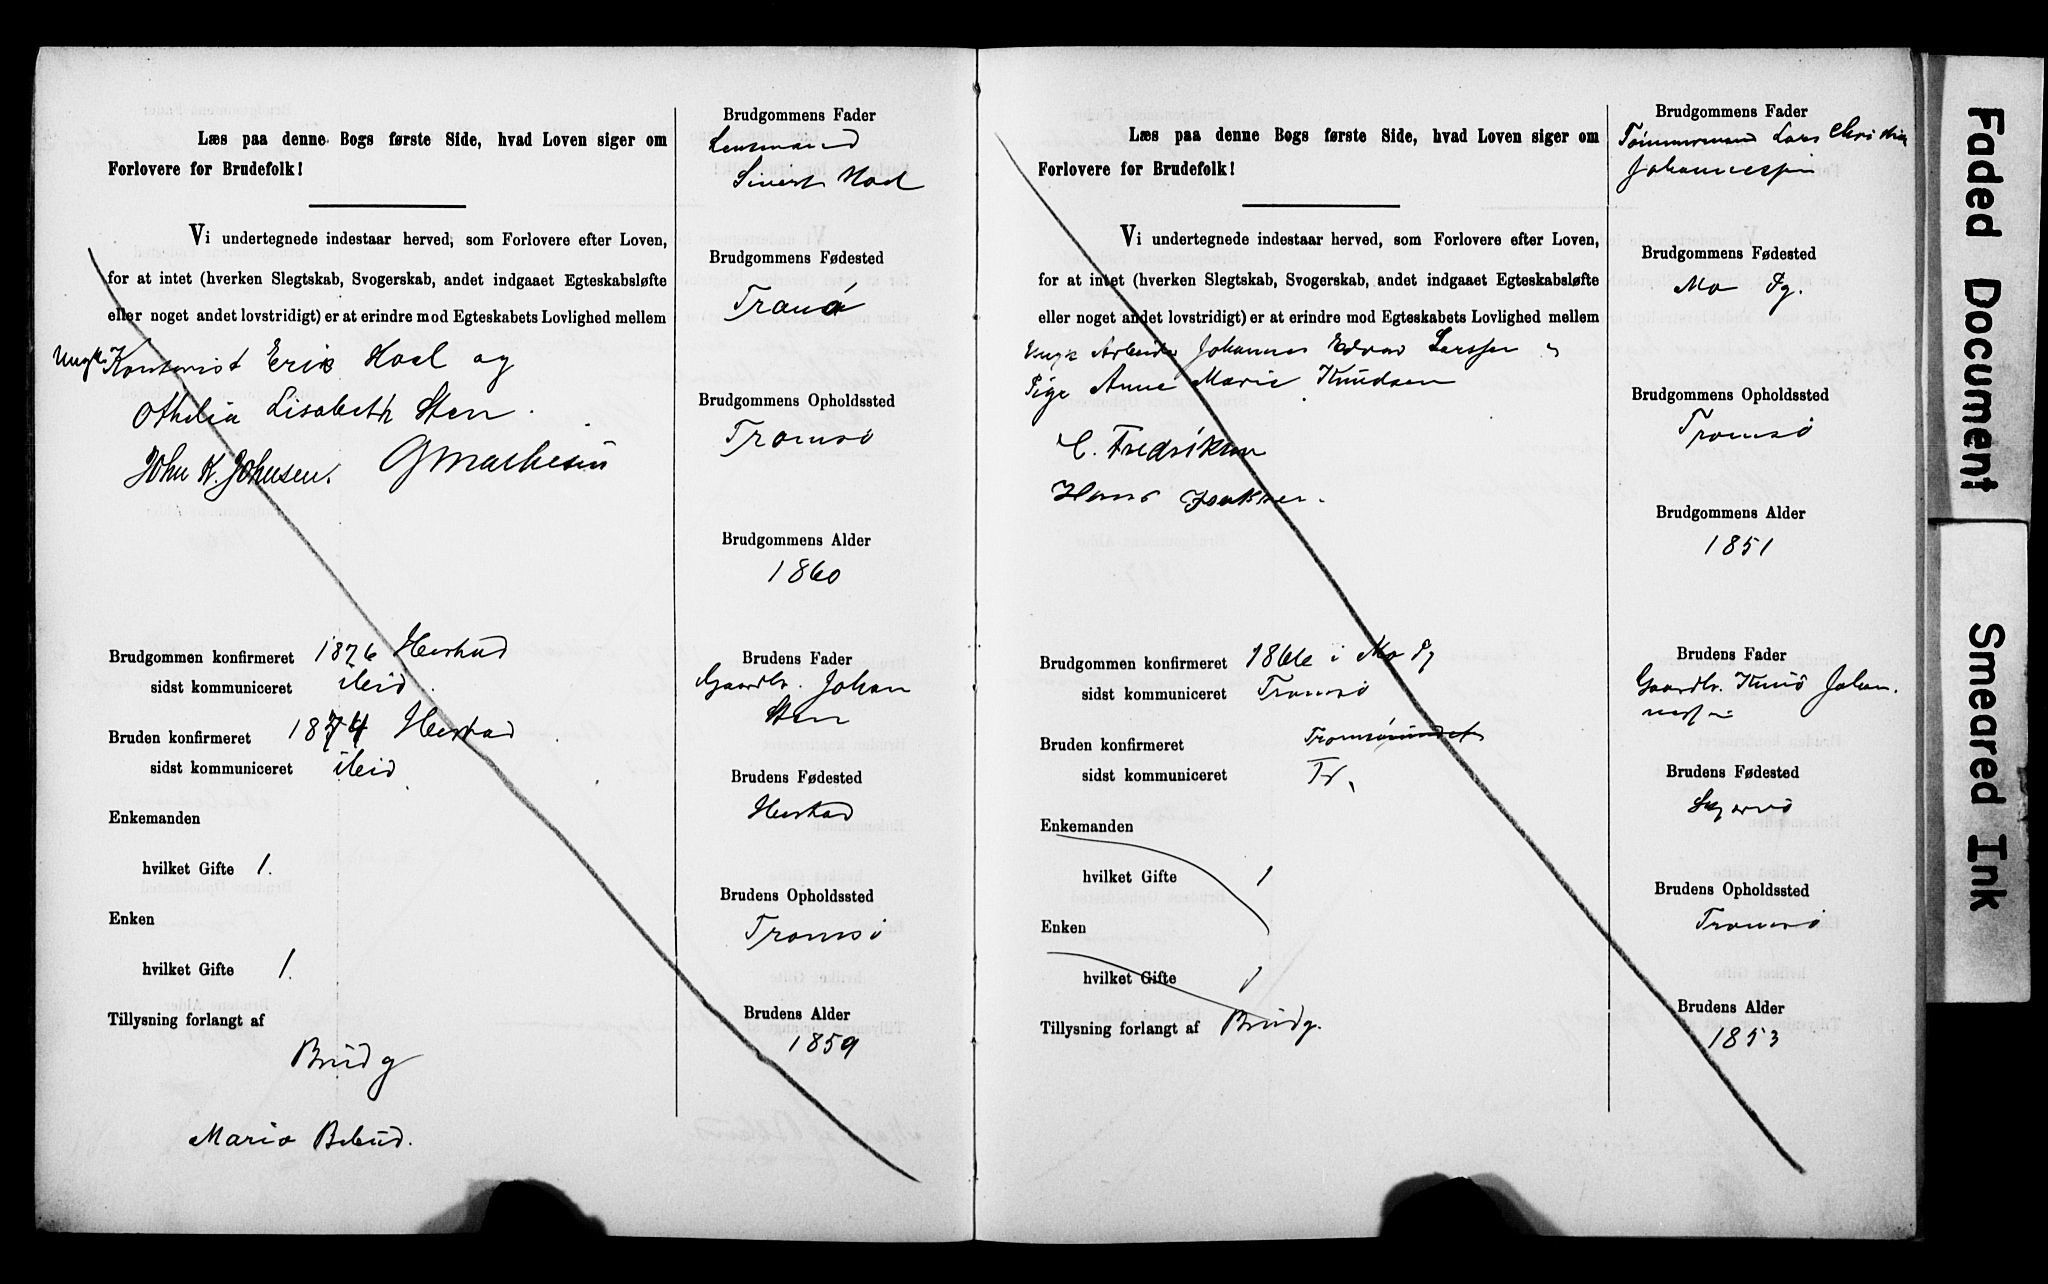 Læs paa denne Bogs første Side, hvad Loven siger om
Forlovere for Brudefolk!
Vi undertegnede indestaar herved, som Forlovere efter Loven,
for at intet (hverken Slegtskab, Svogerskab, andet indgaaet Egteskabsløfte
eller noget andet lovstridigt) er at erindre mod Egteskabets Lovlighed mellem
Ungk. Kontorist Erik Hoel og
Othelia Lisabeth Sten.
John K. Johnsen. G Mathesen
Brudgommen konfirmeret 1876 Herstad
sidst kommuniceret ibid.
Bruden konfirmeret 1874 Herstad
sidst kommuniceret ibid
Enkemanden
hvilket Gifte 1.
Enken
hvilket Gifte 1.
Tillysning forlangt af
Brudg
Maria
Brudgommens Fader
Lensmand
Sivert Hoel
Brudgommens Fødested
Tranø
Brudgommens Opholdssted
Tromsø
Brudgommens Alder
1860
Brudens Fader
Gaardbr. Johan
Sten
Brudens Fødested
Herstad
Brudens Opholdssted
Tromsø
Brudens Alder
1859
Læs paa denne Bogs første Side, hvad Loven siger om
Forlovere for Brudefolk!
Vi undertegnede indestaar herved, som Forlovere efter Loven,
for at intet (hverken Slegtskab, Svogerskab, andet indgaaet Egteskabsløfte
eller noget andet lovstridigt) er at erindre mod Egteskabets Lovlighed mellem
Ungk Arbeider Johannes Edvar Larssen o
Pige Anne Marie Knudsen
C. Fredriksen
Hans Isaksen.
Brudgommen konfirmeret 1866 i Mo Pg
sidst kommuniceret Tromsø
Bruden konfirmeret Tromsøsundet
sidst kommuniceret Tr.
Enkemanden
hvilket Gifte 1
Enken
hvilket Gifte 1
Tillysning forlangt af Brudg.
Brudgommens Fader
Tømmermand Lars Christian
Johannessen
Brudgommens Fødested
Mo Pg.
Brudgommens Opholdssted
Tromsø
Brudgommens Alder
1851
Brudens Fader
Gaardbr. Knud Johan-
nessen
Brudens Fødested
Skjervø
Brudens Opholdssted
Tromsø
Brudens Alder
1853
Faded Document
Smeared Ink